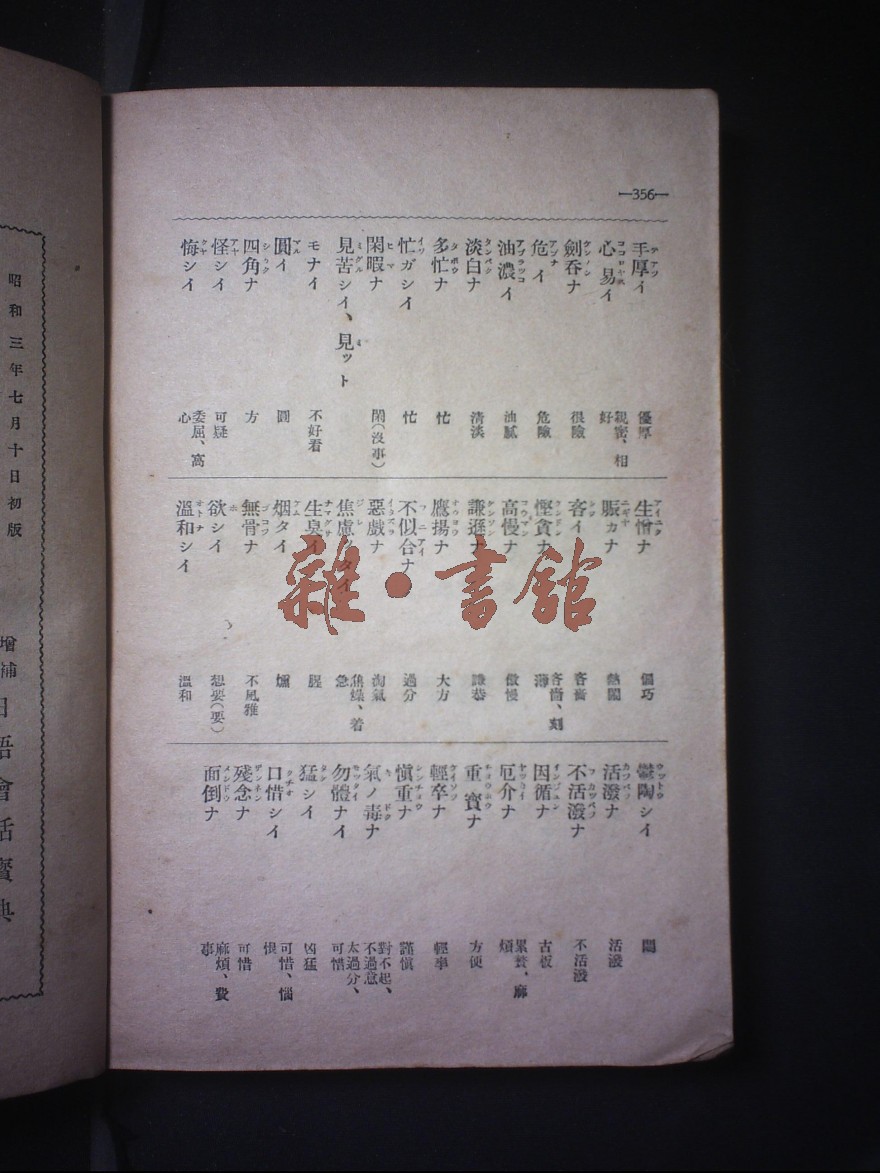 —356—
手厚イ 優厚
心易イ 親密、相好
劍呑ナ 很險
危イ 危險
油濃イ 油膩
淡白ナ 清淡
多忙ナ 忙
忙ガシイ 忙
閑暇ナ 閑(沒事)
見苦シイ、見ット
モナイ 不好看
圓イ 圓
四角ナ 方
怪シイ 可疑
悔シイ 委屈、窩心
生憎ナ 偏巧
賑カナ 熱鬧
吝イ 吝嗇
慳貪ナ 吝嗇、刻薄
高慢ナ 傲慢
謙遜ナ 謙恭
鷹揚ナ 大方
不似合ナ 過分
惡戲ナ 淘氣
焦慮ッタイ 焦燥、着急
生臭イ 腥
烟タイ
無骨ナ 不風雅
欲シイ 想要(要)
溫和シイ 溫和
鬱陶シイ 悶
活潑ナ 活潑
不活潑ナ 不活潑
因循ナ 古板
厄介ナ 累贅、麻煩
重寶ナ 方便
輕卒ナ 輕率
愼重ナ 謹愼
氣ノ毒ナ 對不起、不過意
勿體ナイ 太過分、可惜
猛シイ 凶猛
口惜シイ 可惜、惱恨
殘念ナ 可惜
面倒ナ 麻煩、費事
昭和三年七月十日初版
增補日語會話寶典
雜·書館